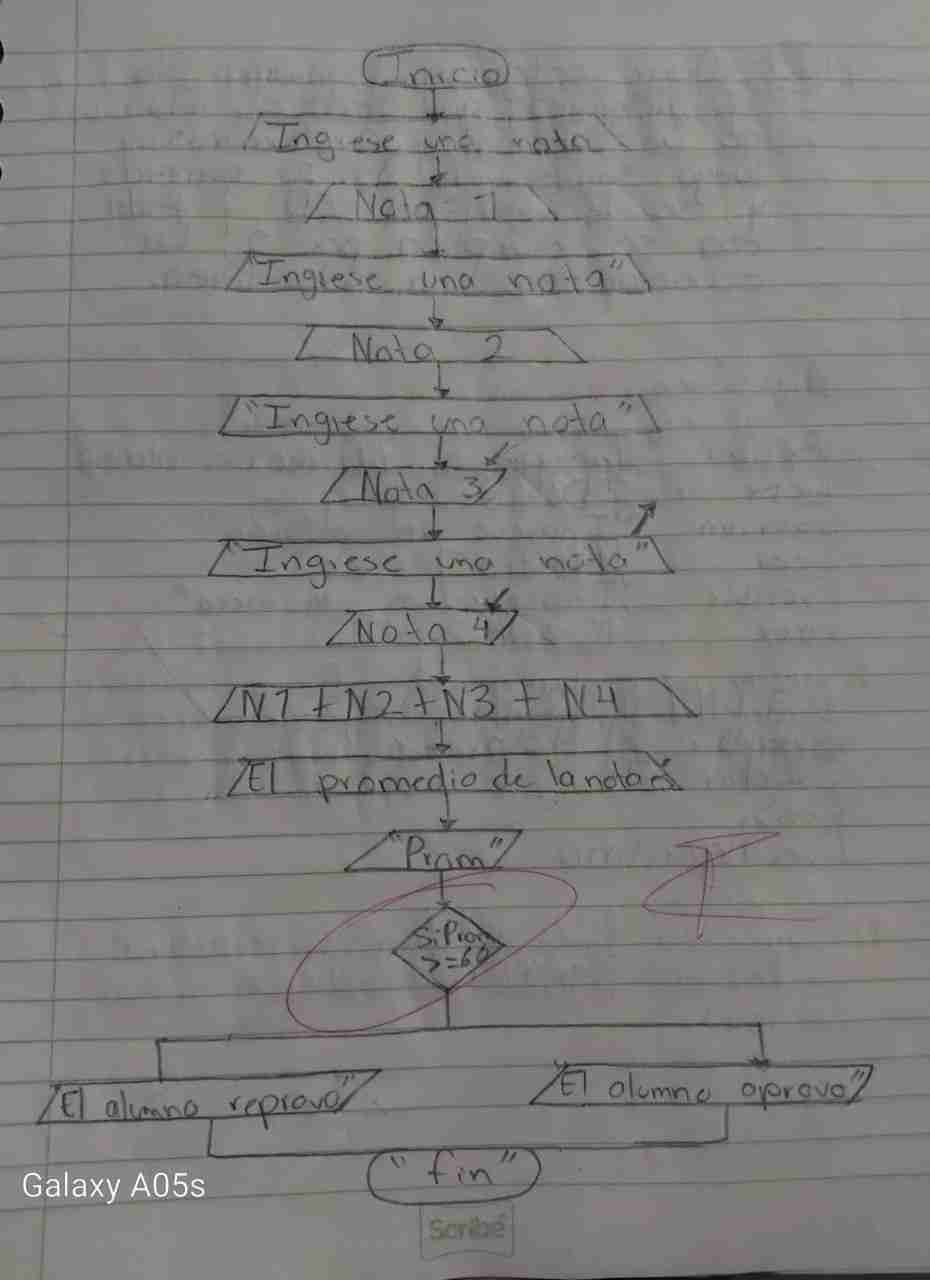 Inicio
Ingrese una nota
Nota 1
"Ingrese una nota"
Nota 2
"Ingrese una nota"
Nota 3
"Ingrese una nota"
Nota 4
N1 + N2 + N3 + N4
"El promedio de la nota es
"Prom"
Si Prom
>=60
"El alumno reprovo"
"El alumno aprovo"
"fin"
Galaxy A05s
Scribe